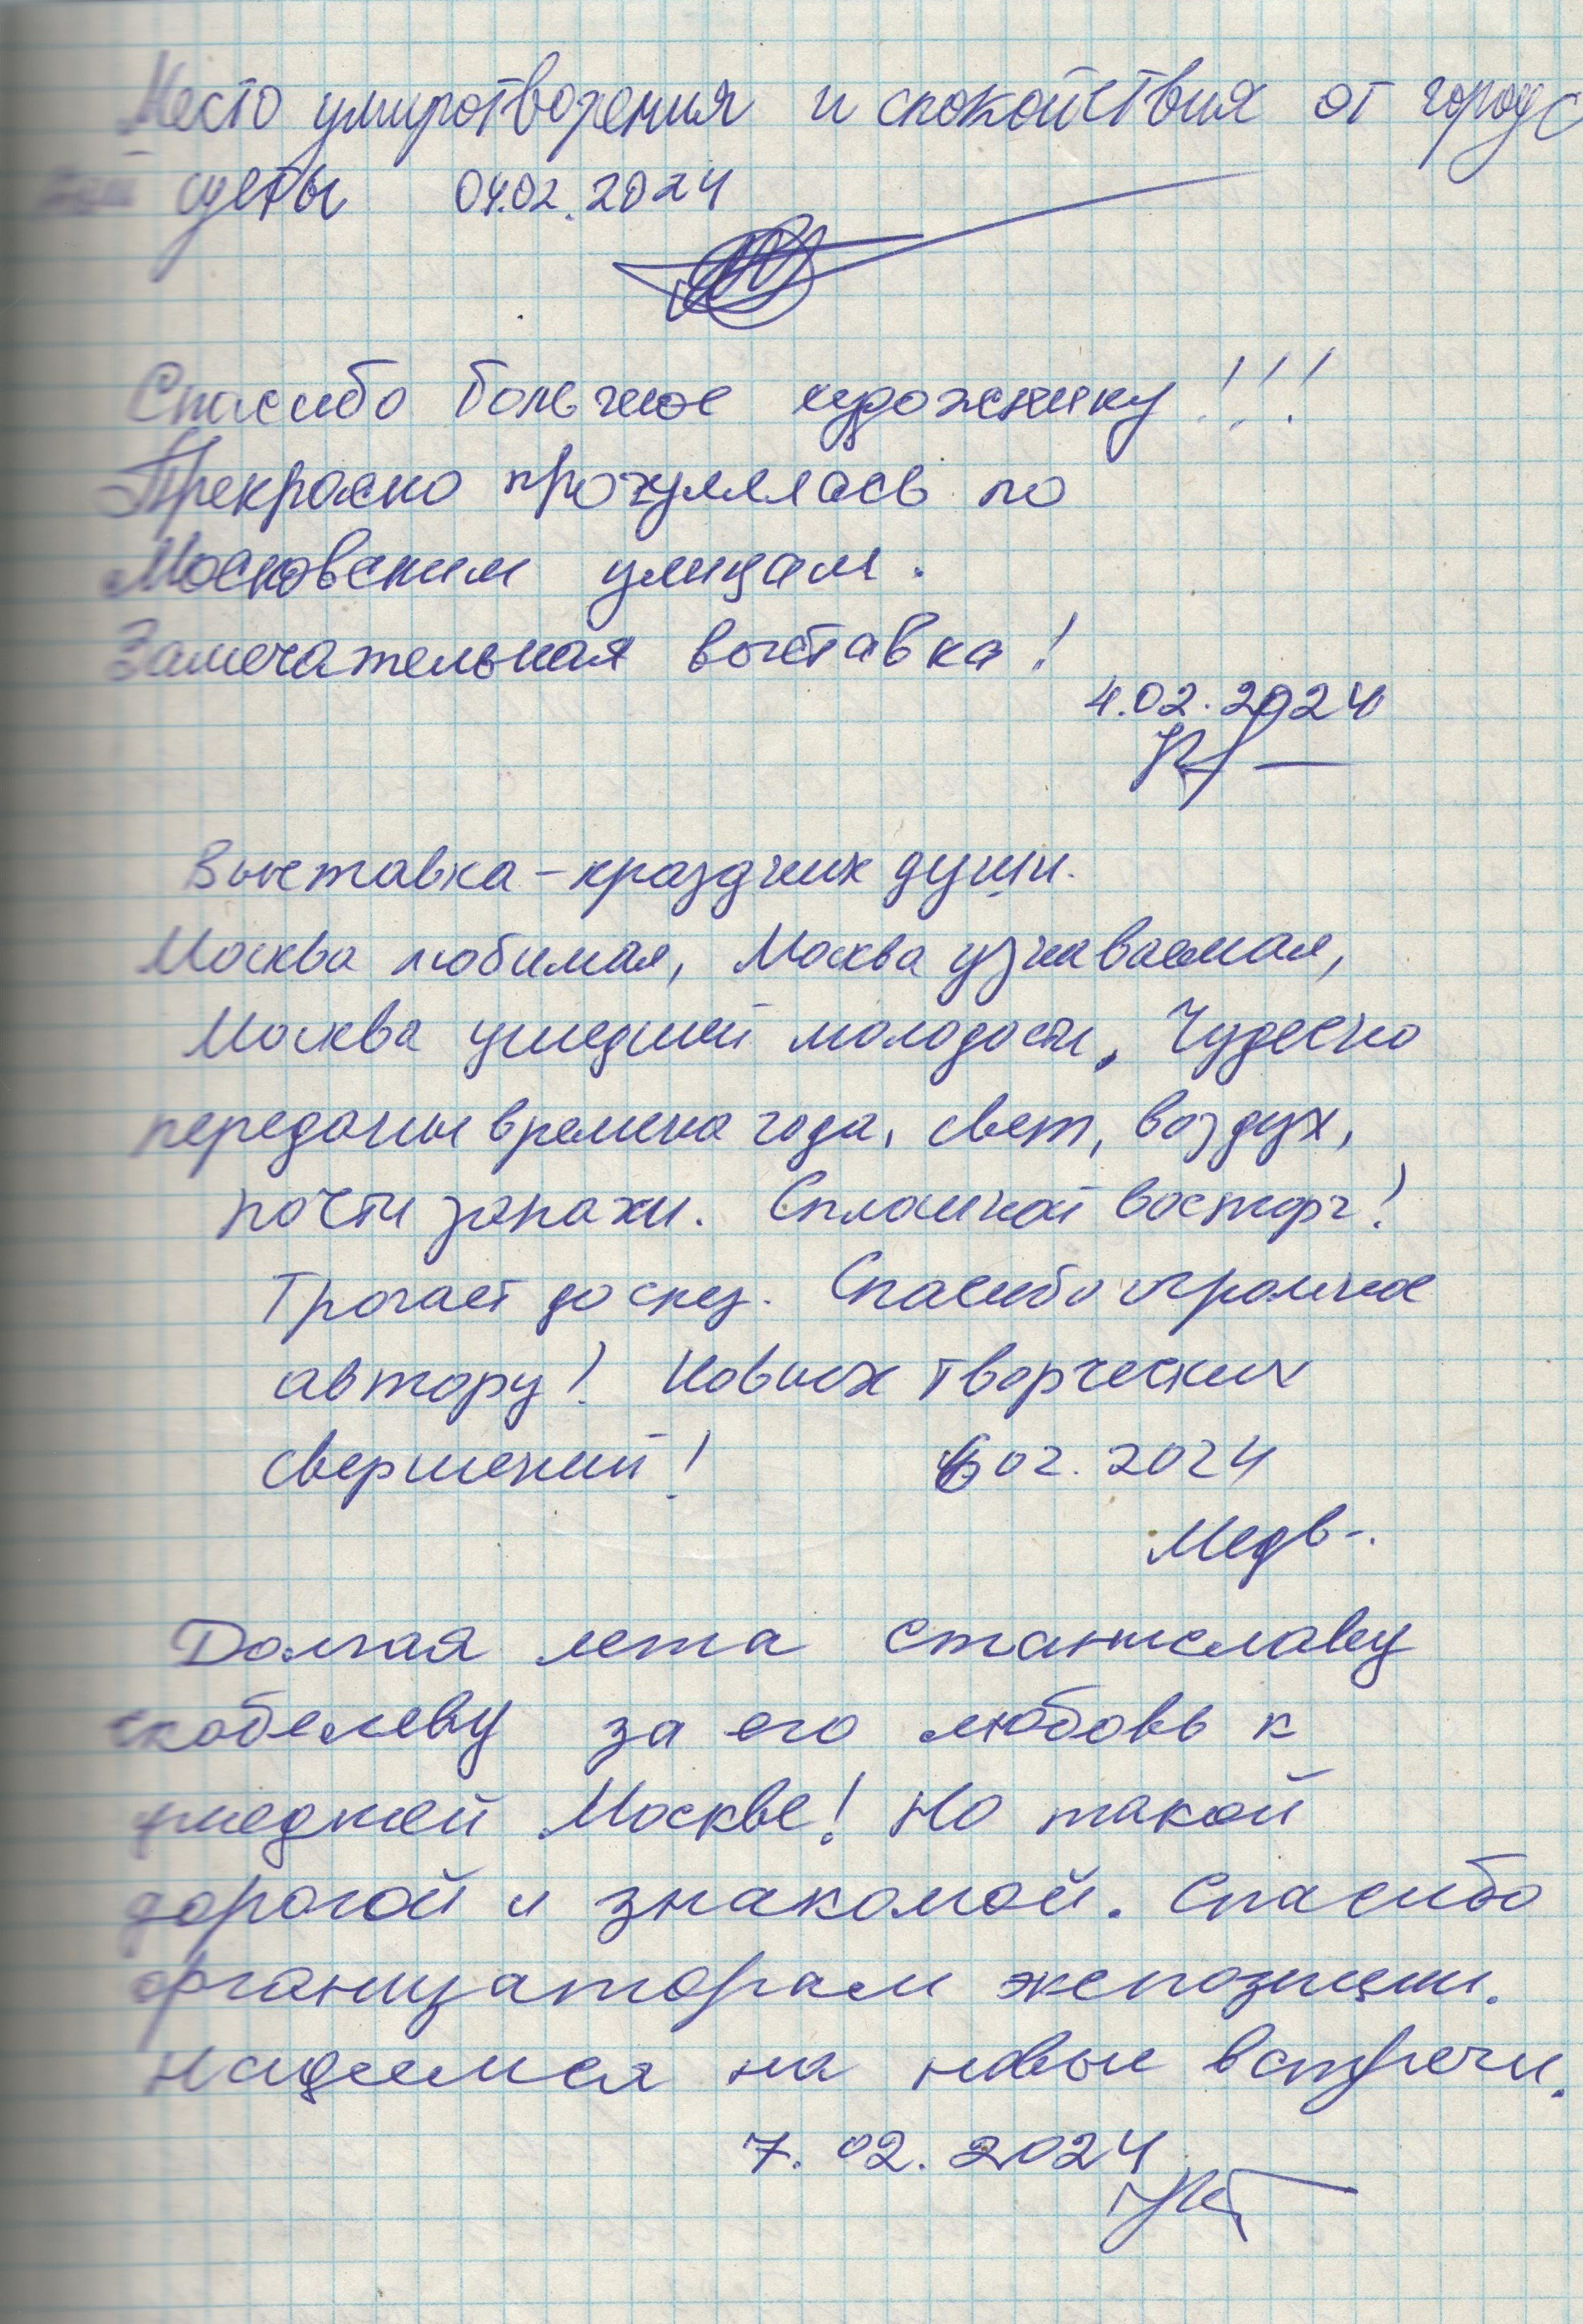 Место умиротворения и спокойствия от городс
кой суеты 04.02.2024
Спасибо большое художнику!!!
Прекрасно прогулялась по
Московским улицам.
Замечательная выставка!
4.02.2024
Выставка – праздник души.
Москва любимая, Москва узнаваемая,
Москва ушедшей молодости. Чудесно
переданы времена года, свет, воздух,
почти запахи. Сплошной восторг!
Трогает до слез. Спасибо огромное
автору! Новых творческих
свершений! 6 02. 2024
Медв-.
Долгая лета Станиславу
Скобелеву за его любовь к
ушедшей Москве! Но такой
дорогой и знакомой. Спасибо
организаторам экспозиции.
Надеемся на новые встречи.
7. 02. 2024